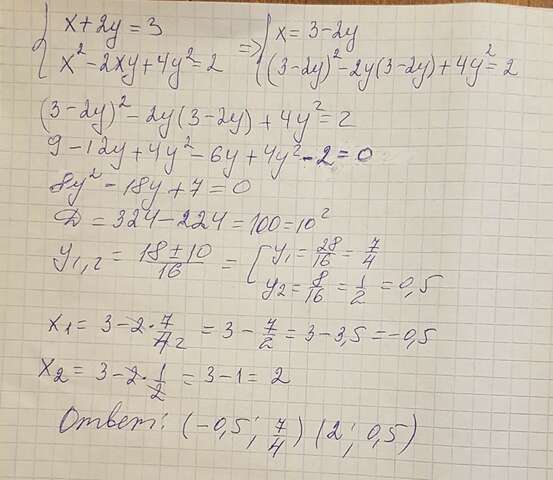 { x + 2y = 3 => { x = 3 - 2y
x² - 2xy + 4y² = 2 (3 - 2y)² - 2y(3 - 2y) + 4y² = 2
(3 - 2y)² - 2y(3 - 2y) + 4y² = 2
9 - 12y + 4y² - 6y + 4y² - 2 = 0
8y² - 18y + 7 = 0
D = 324 - 224 = 100 = 10²
y₁,₂ = (18 ± 10)/16 = [ y₁ = 28/16 = 7/4
y₂ = 8/16 = 1/2 = 0,5
x₁ = 3 - 2 · 7/4 2 = 3 - 7/2 = 3 - 3,5 = -0,5
x₂ = 3 - 2 · 1/2 = 3 - 1 = 2
Ответ: (-0,5; 7/4) (2; 0,5)